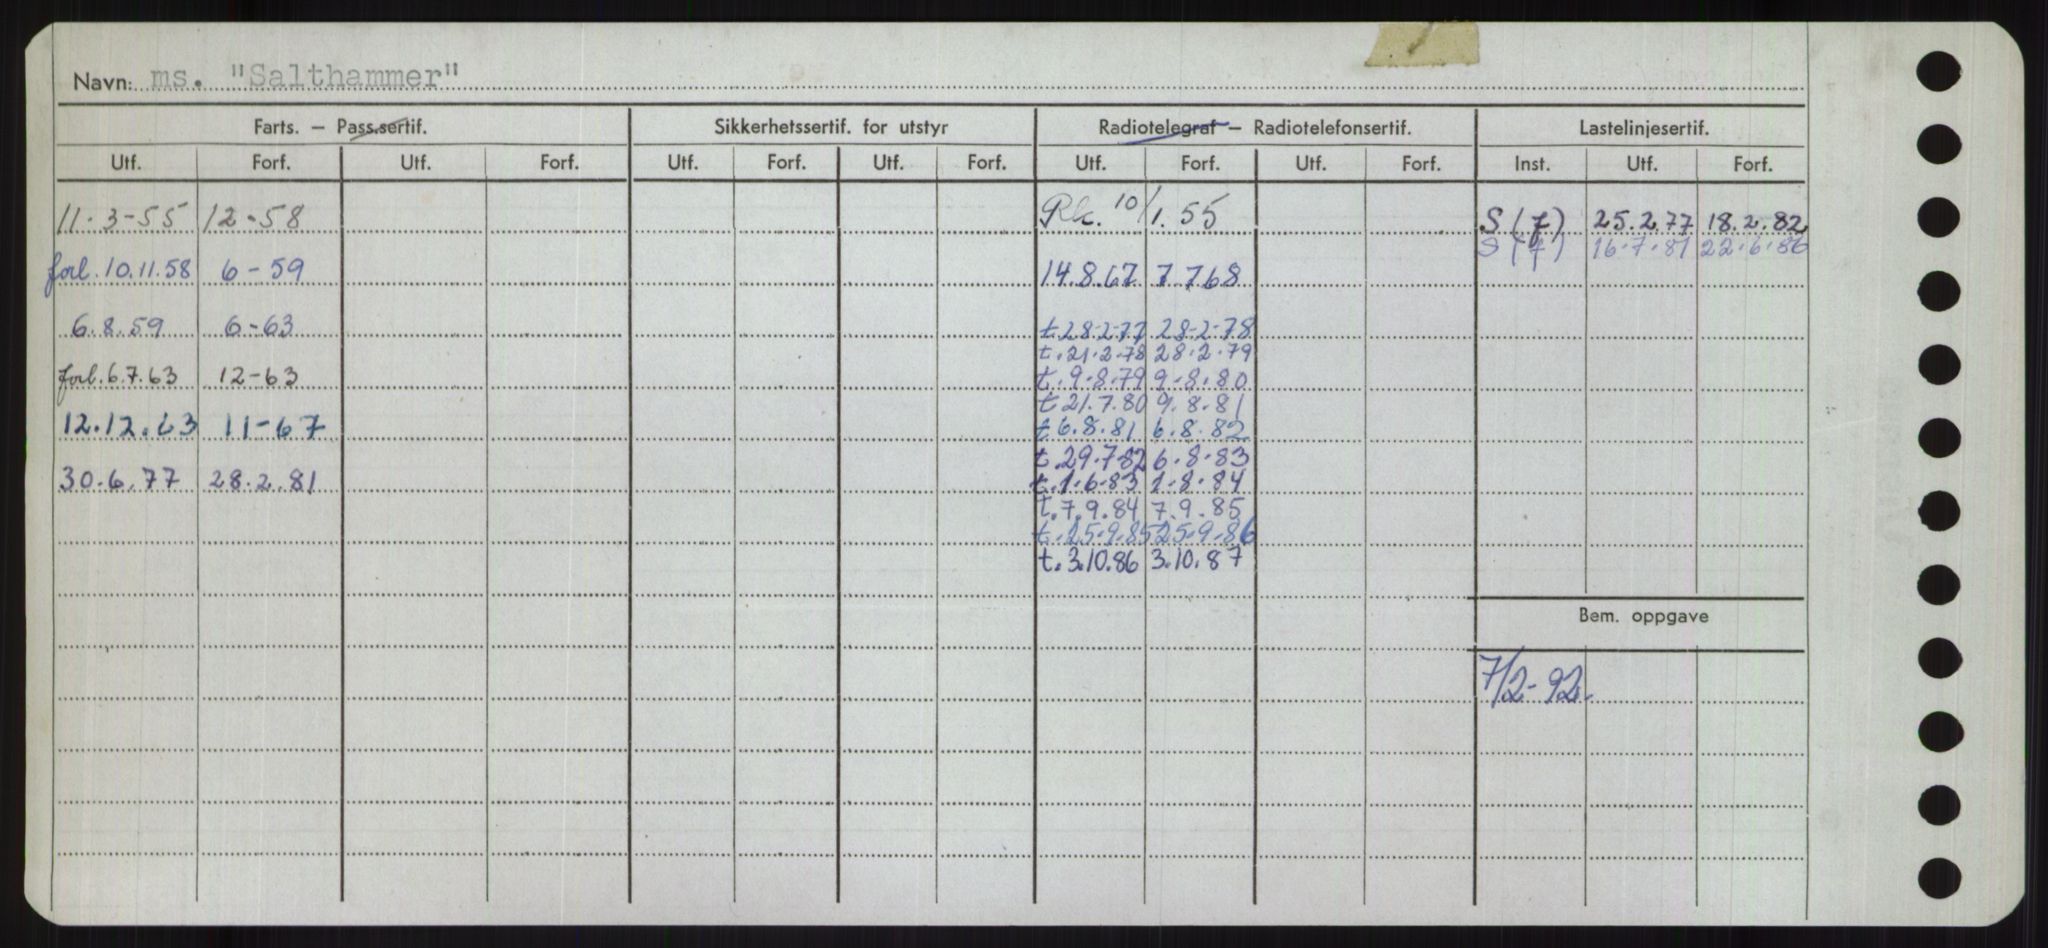 Navn: ms. "Salthammer"
Farts. – Pass.sertif. Sikkerhetssertif. for utstyr Radiotelegraf – Radiotelefonsertif. Lastelinjesertif.
Utf. Forf. Utf. Forf. Utf. Forf. Utf. Forf. Utf. Forf. Utf. Forf. Inst. Utf. Forf.
11.3-55 12-58 Rk. 10/1.55 S(7) 25.2.77 18.2.82
S(7) 16.7.81 22.6.86
forl.10.11.58 6-59 14.8.67 7 768
6.8.59 6-63 t 28-2-77 28-2-78
t.21.2-78 28.2.79
forl.6.7.63 12-63 t.9-8.79 9-8.80
t 21.7.80 9.8.81
12.12.63 11-67 t 6.8.81 6.8.82
t.29.7-82 6.8.83
30.6.77 28.2.81 t.1.6-83 1-8.84
t.7.9.84 7.9.85
t.25.9.85 25.9.86
t.3.10.86 3.10.87
Bem. oppgave
7/2-92.